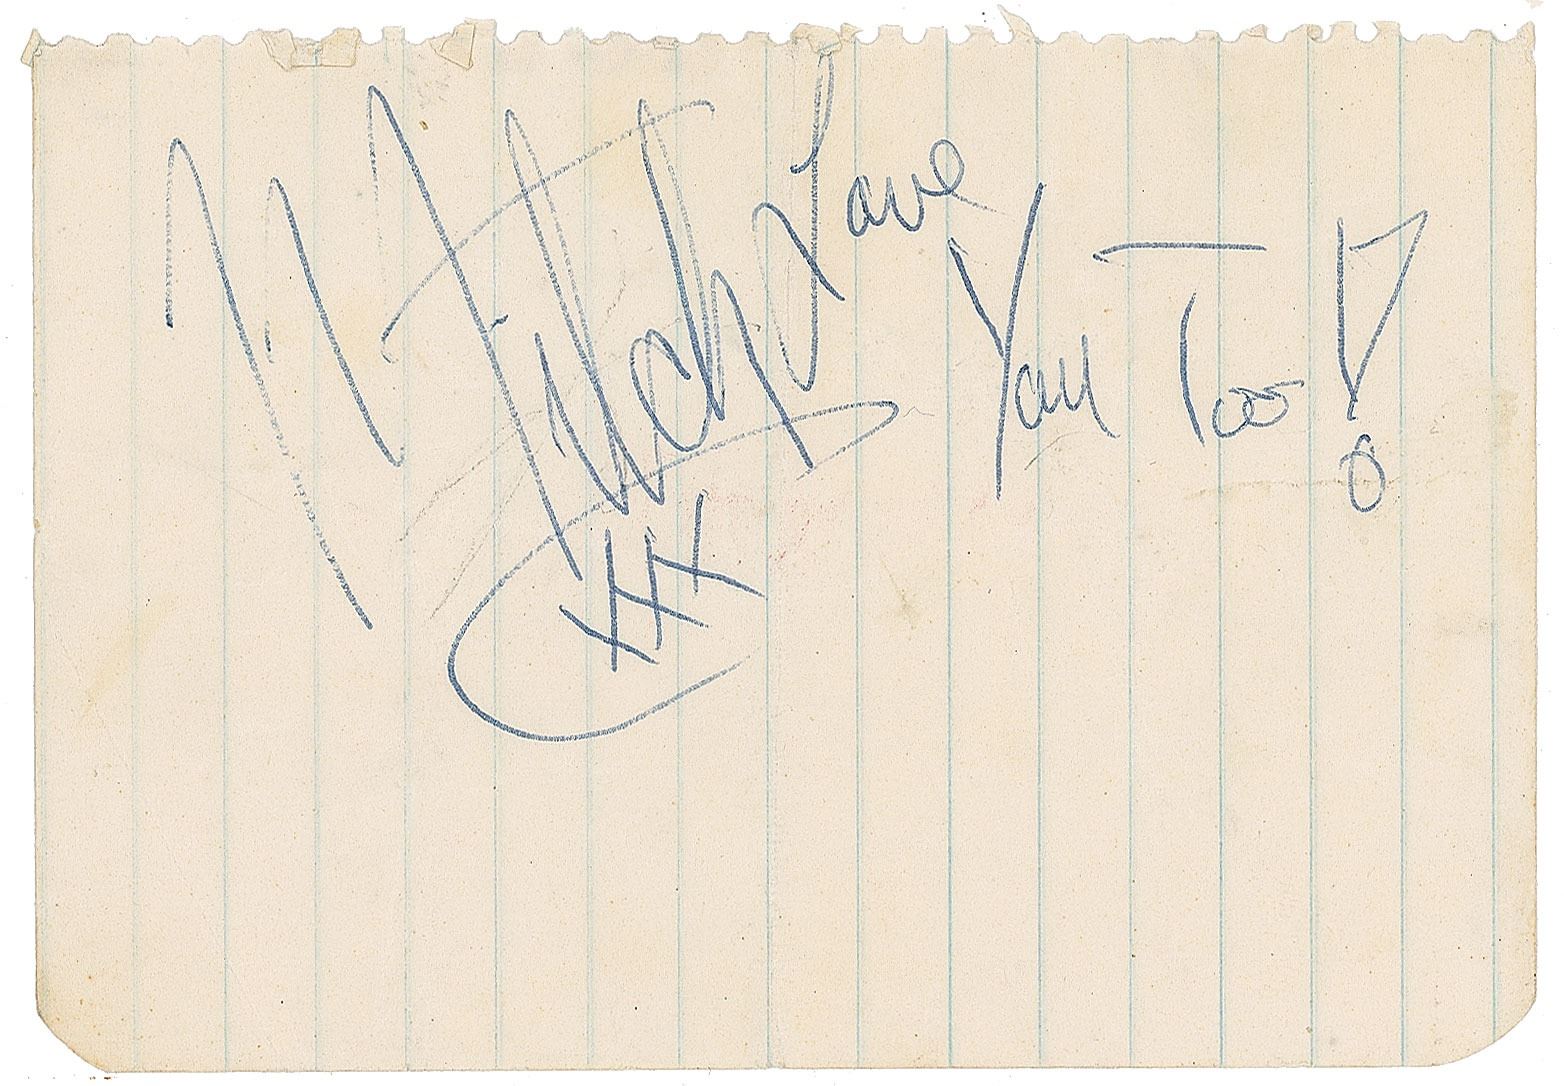 Mitch
Love You Too!
XXX